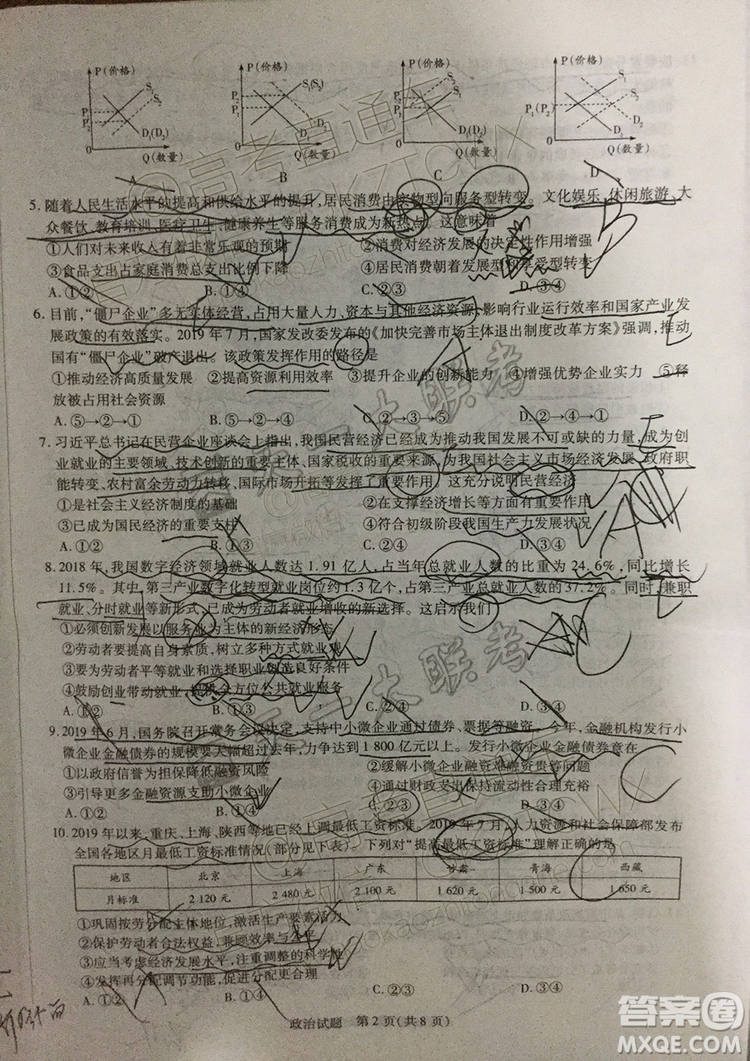 P(价格) P(价格) P(价格) P(价格)
Q(数量) Q(数量) Q(数量) Q(数量)
A B C D
5.随着人民生活水平的提高和供给水平的提升，居民消费由实物型向服务型转变。文化娱乐、休闲旅游、大
众餐饮、教育培训、医疗卫生、健康养生等服务消费成为新热点。这意味着
①人们对未来收入有着非常乐观的预期 ②消费对经济发展的决定性作用增强
③食品支出占家庭消费总支出比例下降 ④居民消费朝着发展型和享受型转变
A.①② B.①③ C.②④ D.③④
6.目前，“僵尸企业”多无实体经营，占用大量人力、资本与其他经济资源，影响行业运行效率和国家产业发
展政策的有效落实。2019年7月，国家发改委发布的《加快完善市场主体退出制度改革方案》强调，推动
国有“僵尸企业”破产退出。该政策发挥作用的路径是
①推动经济高质量发展 ②提高资源利用效率 ③提升企业的创新能力 ④增强优势企业实力 ⑤释
放被占用社会资源
A.⑤→②→① B.⑤→②→④ C.②→③→① D.②→③→④
7.习近平总书记在民营企业座谈会上指出，我国民营经济已经成为推动我国发展不可或缺的力量，成为创
业就业的主要领域、技术创新的重要主体、国家税收的重要来源，为我国社会主义市场经济发展、政府职
能转变、农村富余劳动力转移、国际市场开拓等发挥了重要作用。这充分说明民营经济
①是社会主义经济制度的基础 ②在支撑经济增长等方面贡献大
③已成为国民经济的重要支柱 ④符合初级阶段我国生产力发展状况
A.①② B.①③ C.②④ D.③④
8.2018年，我国数字经济领域就业人数达1.91亿人，占当年总就业人数的比重为24.6%，同比增长
11.5%。其中，第三产业数字化转型就业岗位约1.3亿个，占第三产业总就业人数的37.2%。同时，兼职
就业、分时就业等新形式，已成为劳动者就业增收的新选择。这启示我们
①必须创新发展以服务业为主体的新经济形态
②劳动者要提高自身素质，树立多种方式就业观
③要为劳动者平等就业和选择职业创造良好条件
④鼓励创业带动就业，积极全方位公共就业服务
A.①② B.①③ C.②④ D.③④
9.2019年6月，国务院召开常务会议决定，支持中小微企业通过债券、票据等融资。今年，金融机构发行小
微企业金融债券的规模要大幅超过去年，力争达到1800亿元以上。发行小微企业金融债券意在
①以政府信誉为担保降低融资风险 ②缓解小微企业融资难融资贵等问题
③引导更多金融资源支助小微企业 ④通过财政支出保持流动性合理充裕
A.①② B.①④ C.②③ D.③④
10.2019年以来，重庆、上海、陕西等地已经上调最低工资标准。2019年7月，人力资源和社会保障部发布
全国各地区月最低工资标准情况（部分见下表）。下列对“提高最低工资标准”理解正确的是
地区 北京 上海 广东 甘肃 青海 西藏
月标准 2 120元 2 480元 2 100元 1 620元 1 500元 1 650元
①巩固按劳分配主体地位，激活生产要素活力
②保护劳动者合法权益，兼顾效率与公平
③应当考虑经济发展水平，注重调整的科学性
④发挥再分配调节功能，促进分配更加合理
A.①② B.①④ C.②③ D.③④
政治试题 第2页(共8页)
答案圈
MXQE.COM